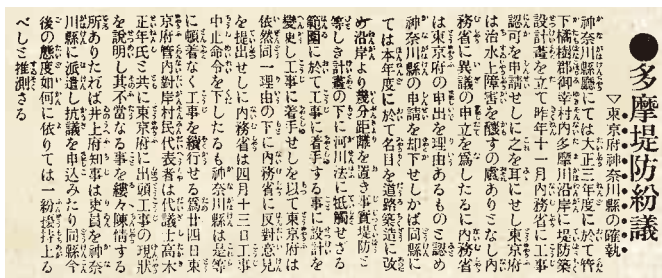 ●多摩堤防紛議
▽東京府神奈川縣の確執
神奈川縣廳にては大正三年度に於て管
下橘樹郡御幸村内多摩川沿岸に堤防築
設計畫を立て昨年十一月内務省に工事
認可を申請せしに之を耳にせし東京府
は治水上障害を釀すの虞ありとなし内
務省に異議の申立を爲したるに内務省
は東京府の申出を理由あるものと認め
神奈川縣の申請を却下せしかば同縣に
ては本年度に於て名目を道路築造と改
め沿岸より幾分距離を置き事實堤防と
等しき計畫の下に河川法に牴觸せざる
範圍に於て工事に着手する事に設計を
變更し工事に着手せしを以て東京府は
依然同一理由の下に内務省に反對意見
を提出せしに内務省は四月十三日工事
中止命令を下したるも神奈川縣は是等
に頓着なく工事を續行せる爲廿四日東
京府管内對岸村民代表者は代議士高木
正年氏と共に東京府に出頭工事の現狀
を說明し其不當なる事を縷々陳情する
所ありたれば井上府知事は吏員を神奈
川縣に派遣し抗議を申込みたり同縣今
後の態度如何に依りては一紛擾持上る
べしと推測さる